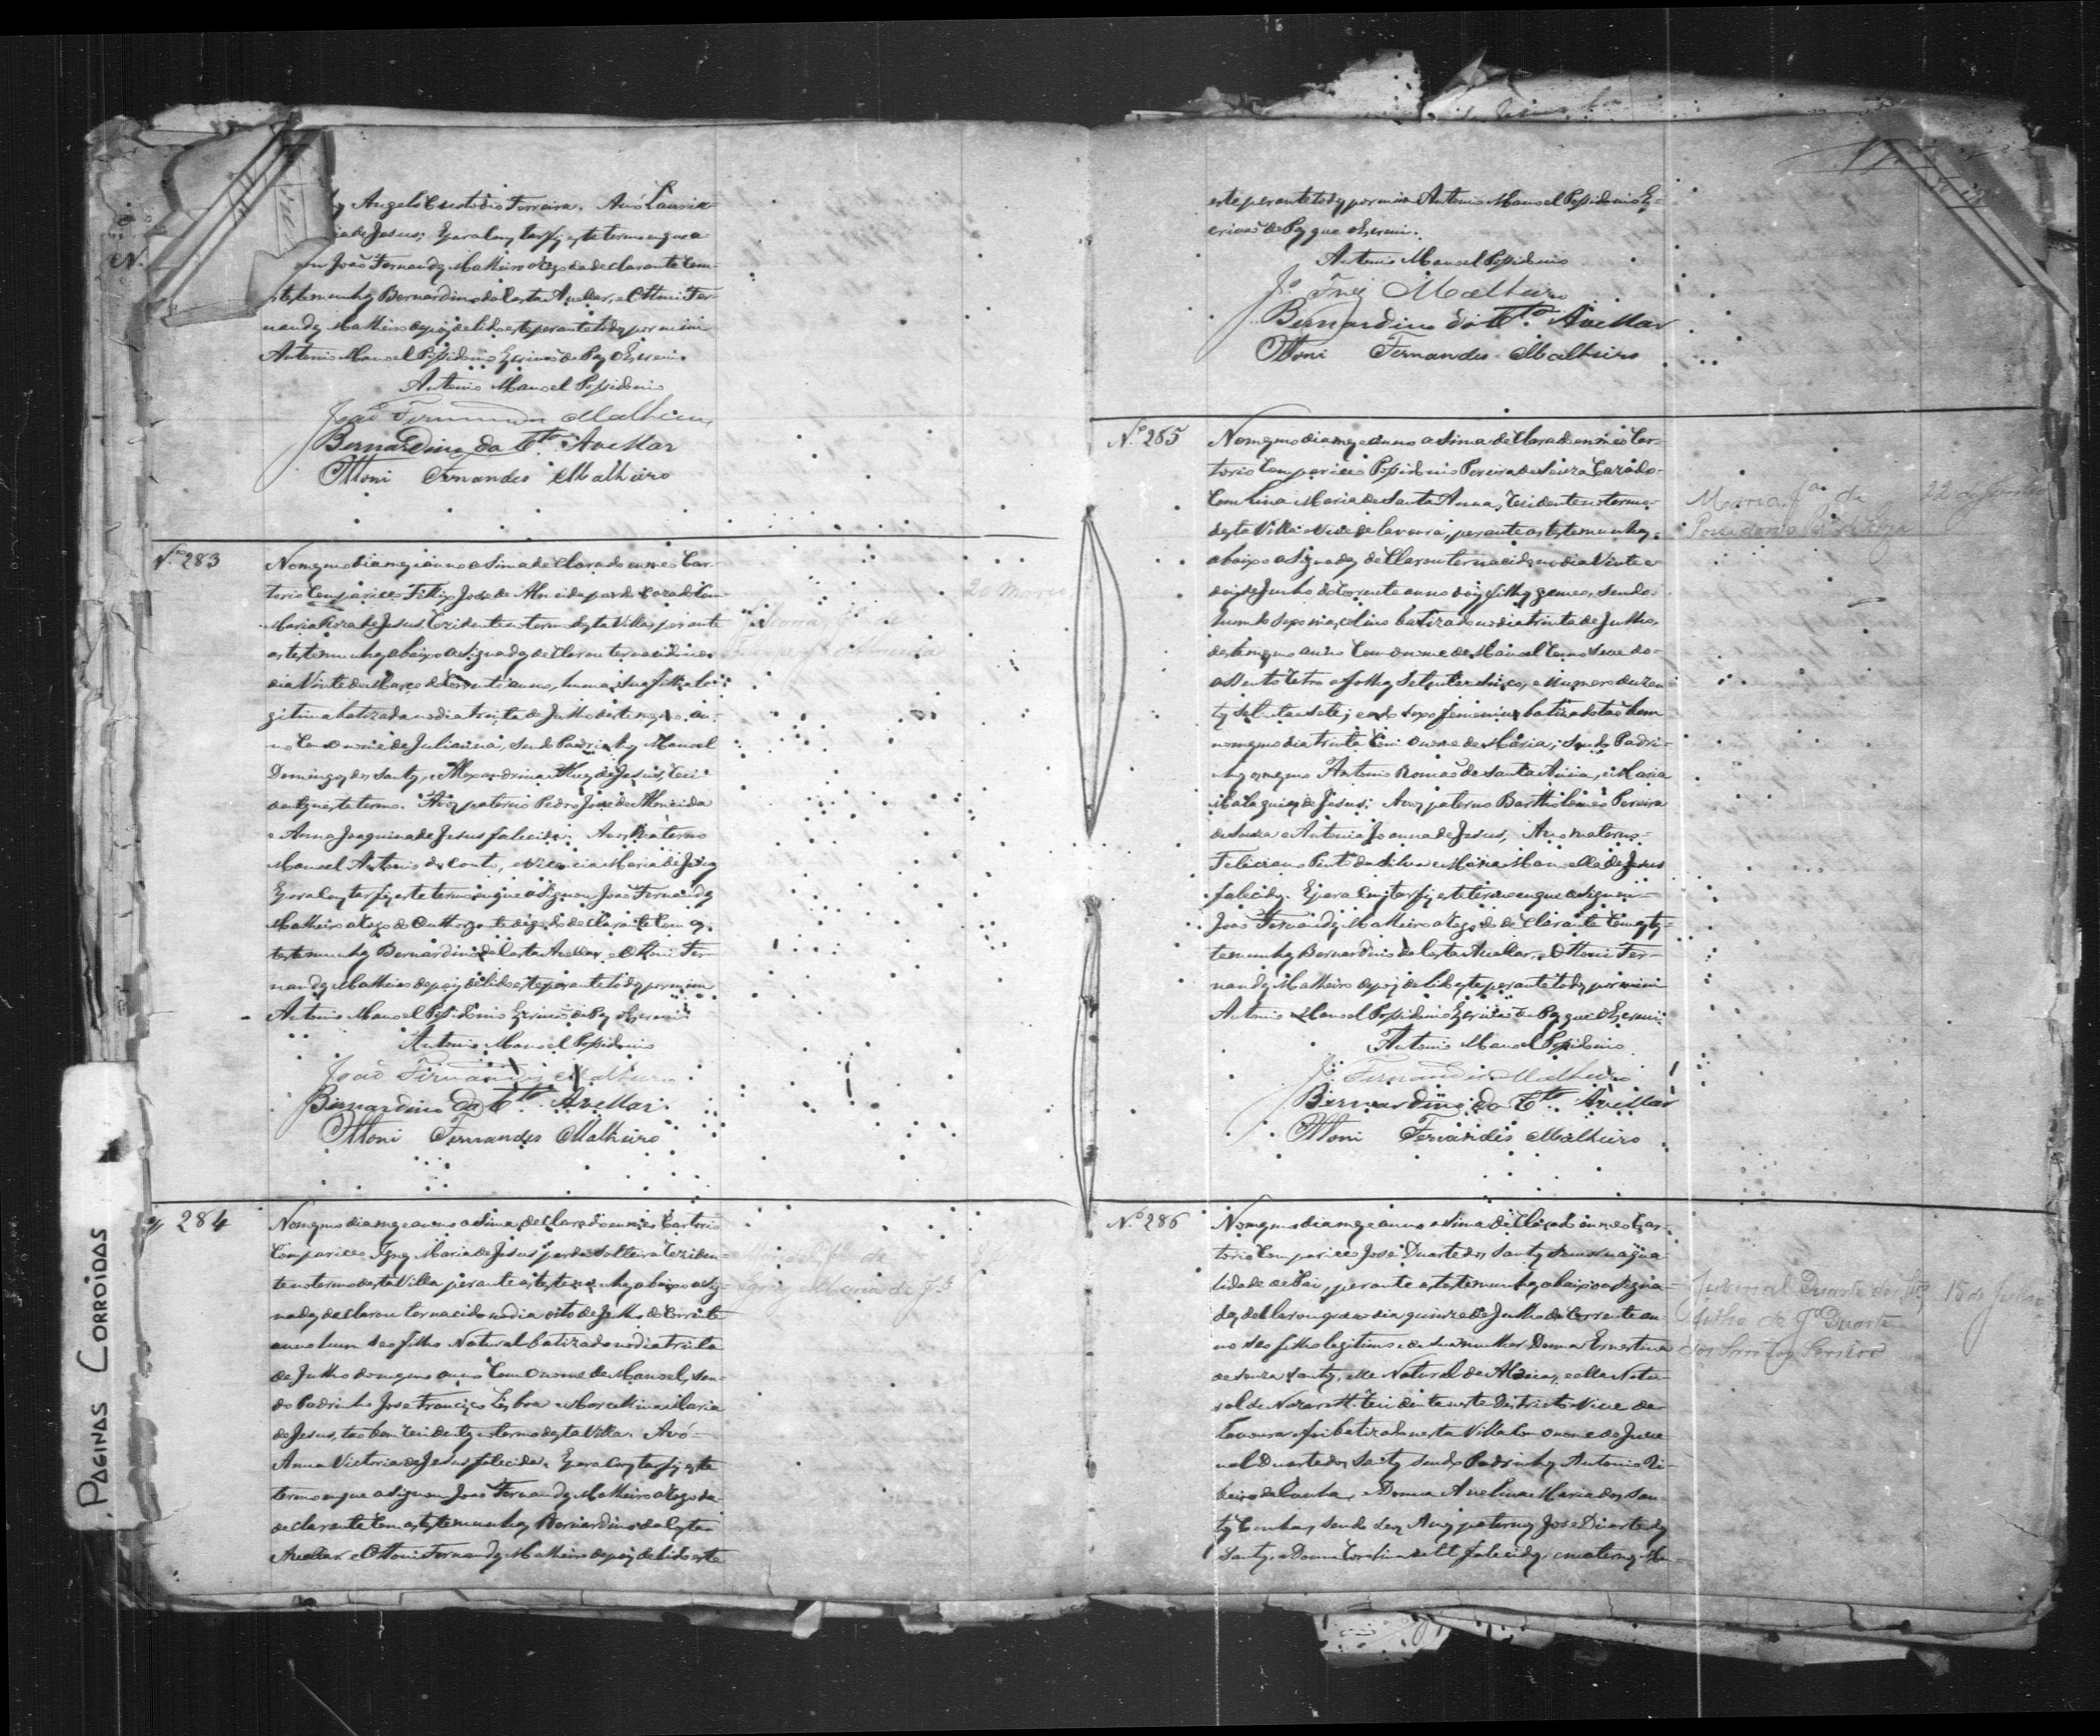 Angelo Custodio Ferreira. Avó Lauria-
de Jesus; Epara Constar fiz este termo em que a
João Fernandes Malheiro arogo da declarante Com
testemunhas Bernardino da Costa Avellar, e Ottoni Fer-
nandes Malheiro depois de lido este perante todos por mim
Antonio Manoel Possidonio Escrivão de Paz o Escrevi.
Antonio Manoel Possidonio
João Fernandes Malheiro
Bernardino da Cta Avellar
Ottoni Fernandes Malheiro
Nº 283
No mesmo dia mez e anno asima declarado em meo Car-
torio Compareceo Fellipe Jose de Almeida pardo Cazado Com
Maria Roza de Jesus, Rezidente no termo desta Villa, perante
as testemunhas abaixo asignadas declarou ter nacido no
dia Vinte de Março do Corrente anno, huma sua filha le-
gitima batizada no dia trinta de Julho deste mesmo an-
no Com o nome de Julianna, sendo Padrinhos Manoel
Domingos dos Santos, e Alexandrina de Jesus, Rezi-
dentes neste termo. Avos paterno Pedro Jose de Almeida
e Anna Joaquina de Jesus falecida. Avos Materno
Manoel Antonio do Couto, e Vicencia Maria de Jesus
Epara Constar fiz este termo em que asignou João Fernandes
Malheiro arogo do declarante Com as
testemunhas Bernardino da Costa Avellar, e Ottoni Fer-
nandes Malheiro depois de lido este perante todos por mim
Antonio Manoel Possidonio Escrivão de Paz o Escrevi.
Antonio Manoel Possidonio
João Fernandes Malheiro
Bernardino da Cta Avellar
Ottoni Fernandes Malheiro
20 Março
284
No mesmo dia mez e anno asima declarado em meo Cartorio
Compareceo Ignez Maria de Jesus parda Solteira Reziden-
te no termo desta Villa perante as testemunhas abaixo asig-
nadas declarou ter nacido no dia oito de Julho do Corrente
anno hum seo filho Natural batizado no dia trinta
de Julho do mesmo anno Com o nome de Manoel, sen-
do Padrinho Jose Francisco Lisboa e Marcellina Maria
de Jesus, tão bem Rezidentes no termo desta Villa. Avó
Anna Victoria de Jesus falecida. Epara Constar fiz este
termo em que asignou João Fernandes Malheiro arogo da
declarante Com as testemunhas Bernardino da Costa
Avellar e Ottoni Fernandes Malheiro depois de lido este
Manoel fo de
Ignez Maria de Js
este perante todos por mim Antonio Manoel Possidonio Es-
crivão de Paz que o Escrevi.
Antonio Manoel Possidonio
Jo Frz Malheiro
Bernardino da Cta Avellar
Ottoni Fernandes Malheiro
Nº 285
No mesmo dia mez e anno asima declarado em meo Car-
torio Compareceo Possidonio Pereira de Souza Cazado
Com Lina Maria de Santa Anna, Rezidente no termo
desta Villa e Vive de lavoura, perante as testemunhas
abaixo asignadas declarou ter nacido no dia Vinte e
dois de Junho do Corrente anno dois filhos gemeos, sendo
hum do sexo mascolino batizado no dia trinta de Julho,
deste mesmo anno Com o nome de Manoel Como se ve do
asento retro a folhas Setenta e Sinco, e Numero duzen-
tos setenta e sete; e o do sexo femenino batizado tão bem
no mesmo dia trinta Com o nome de Maria; sendo Padri-
nhos os mesmos Antonio Romão de Santa Anna, e Maria
Malaquias de Jesus; Avos paterno Bartholomeo Pereira
de Souza e Antonia Joanna de Jesus, Avos materno
Feliciano Pinto da Silva e Maria Manoella de Jesus
falecidos. Epara Constar fiz este termo em que asignou
João Fernandes Malheiro arogo do declarante Com as tes-
temunhas Bernardino da Costa Avellar, e Ottoni Fer-
nandes Malheiro depois de lido este perante todos por mim
Antonio Manoel Possidonio Escrivão de Paz que o Escrevi.
Antonio Manoel Possidonio
Jo Fernandes Malheiro
Bernardino da Cta Avellar
Ottoni Fernandes Malheiro
Maria, fa de
Possidonio
22
Nº 286
No mesmo dia mez e anno asima declarado em meo Car-
torio Compareceo Jose Duarte dos Santos Senior na qua-
lidade de Pai, perante as testemunhas abaixo asigna-
das declarou que no dia quinze de Julho do Corrente an-
no seo filho legitimo e de sua mulher Donna Ernestina
de Souza Santos, elle Natural de e ella Natu-
ral de Nazareth Rezidente neste Districto Vive de
lavoura foi batizado nesta Villa Com o nome de Juve-
nal Duarte dos Santos sendo Padrinhos Antonio Ri-
beiro da Cunha, e Donna Avelina Maria dos San-
tos Cunha, sendo seos Avos paternos Jose Duarte dos
Santos, e Donna Carolina falecidos, e maternos Ma-
Juvenal Duarte dos Stos
filho de Je Duarte
dos Santos Senior
15 de Julho
PAGINAS CORROIDAS